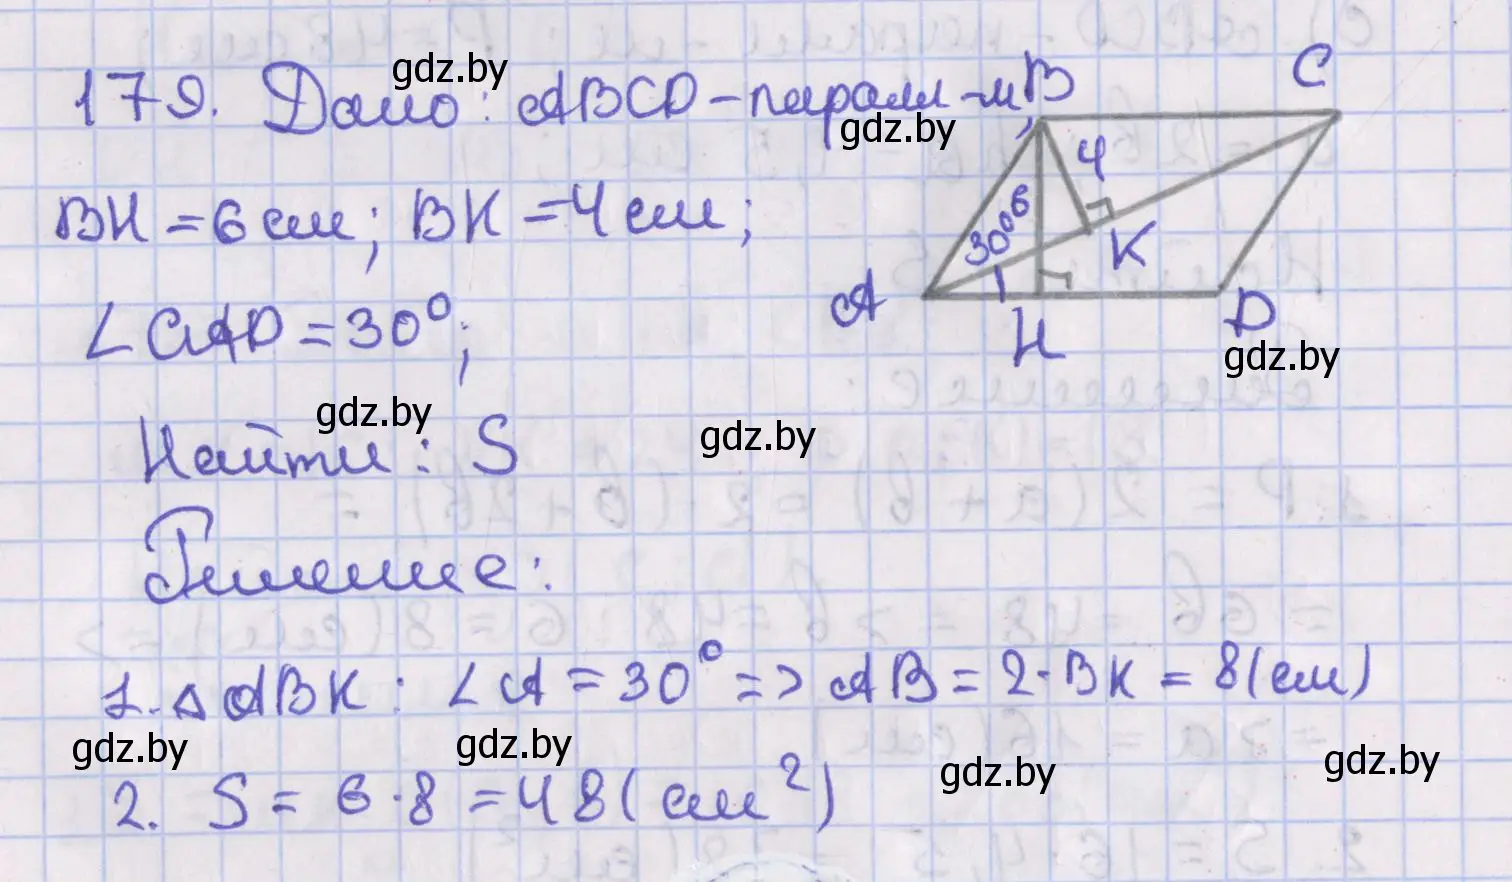 179. Дано: ABCD - паралл-м,
BH = 6 см; BK = 4 см;
∠CAD = 30°;
Найти: S
Решение:
1. △ABK: ∠A = 30° => AB = 2·BK = 8(см)
2. S = 6·8 = 48(см²)
B
C
4
6
30°
K
A
H
D
gdz.by
gdz.by
gdz.by
gdz.by
gdz.by
gdz.by
gdz.by
gdz.by
gdz.by